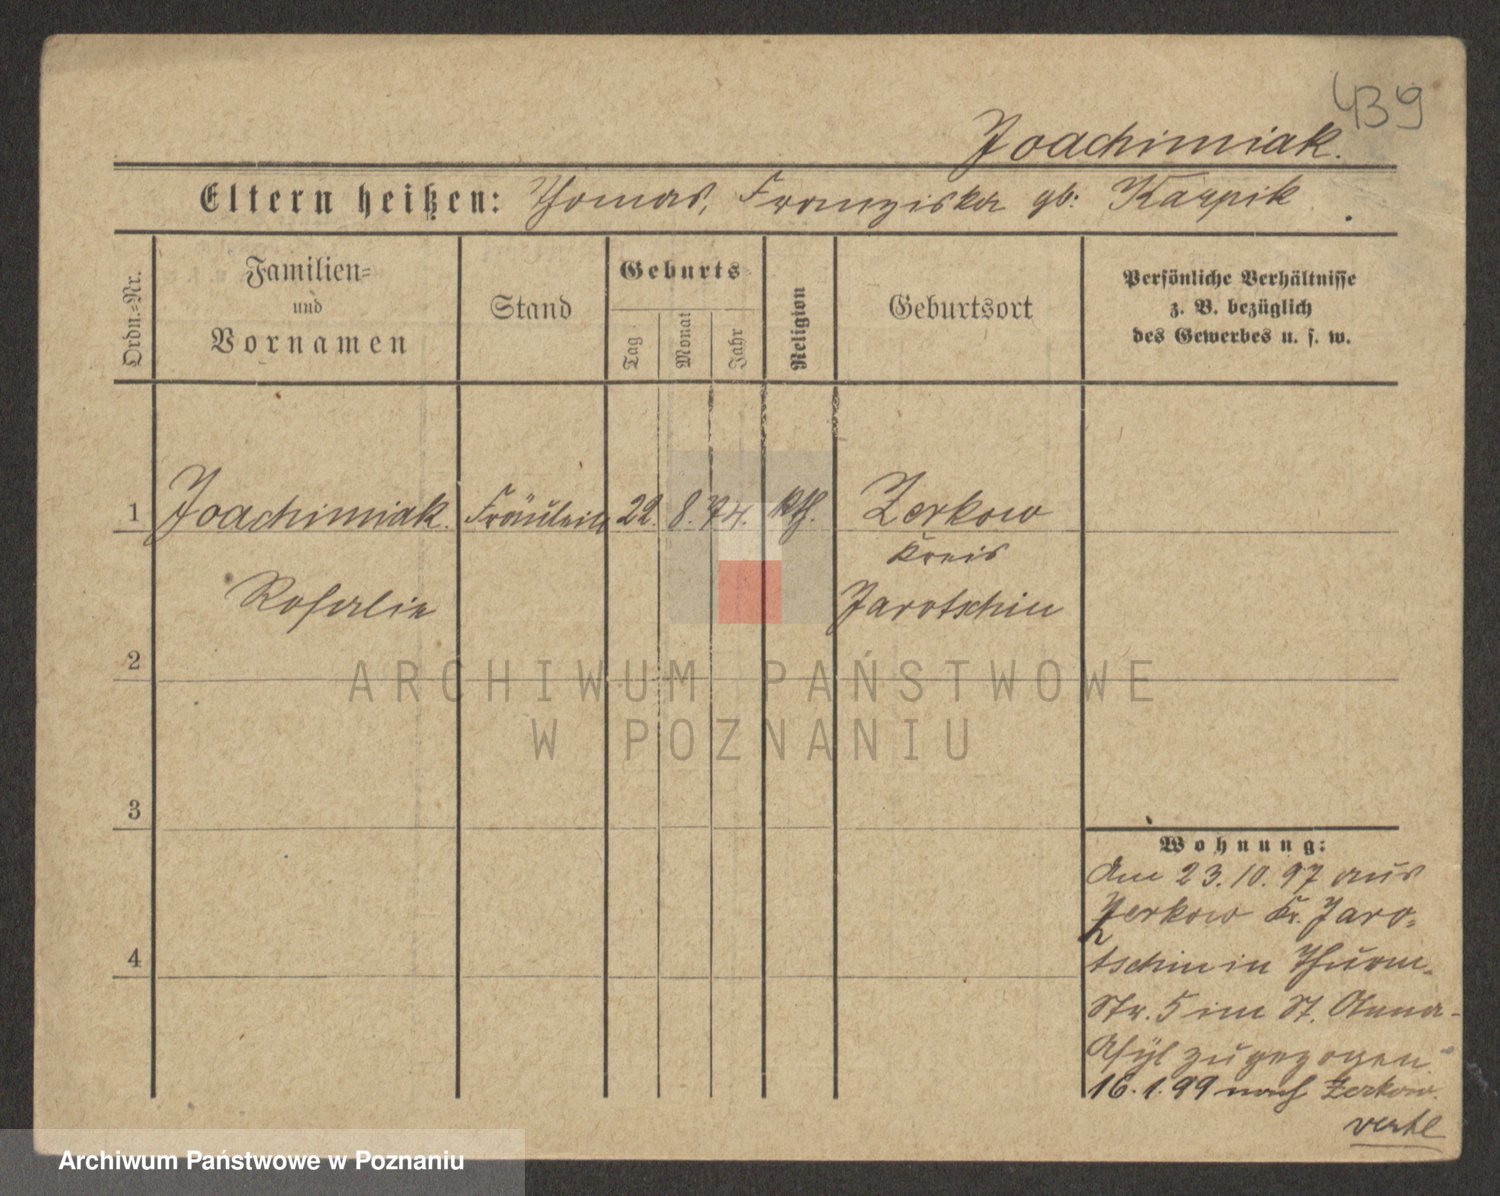 439
Joachimiak.
Eltern heißen: Thomas, Franziska gb: Karpik
Ordn.=Nr.
Familien=
und
Vornamen
Stand
Geburts=
Tag
Monat
Jahr
Religion
Geburtsort
Persönliche Verhältnisse
z. B. bezüglich
des Gewerbes u. s. w.
1 Joachimiak. Fräulein 22. 8. 74. kth. Zerkow
Kreis
Rosalie Jarotschin
2
ARCHIWUM PAŃSTWOWE
W POZNANIU
3
Wohnung:
Am 23.10.97 aus
Zerkow Kr. Jaro=
4
tschin in Thurm-
Str. 5 im St. Anna-
Asyl zugezogen
16.1.99 nach Zerkow.
verte
Archiwum Państwowe w Poznaniu